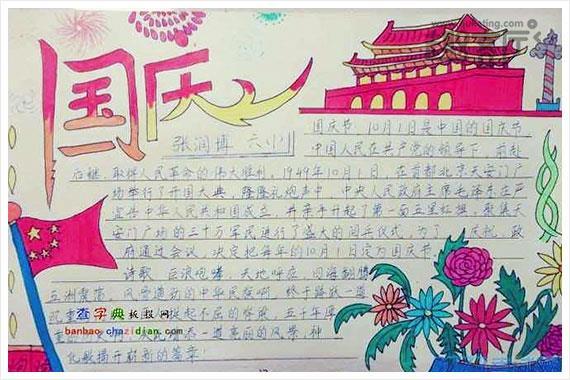 国庆
张润博 六(1)
国庆节 10月1日是中国的国庆节
中国人民在共产党的领导下,前赴
后继,取得人民革命的伟大胜利。1949年10月1日,在首都北京天安门广
场举行了开国大典,隆隆礼炮声中,中央人民政府主席毛泽东庄严
宣告中华人民共和国成立,并亲手升起了第一面五星红旗。聚集天
安门广场的三十万军民进行了盛大的阅兵仪式,为了庆祝,政
府通过会议,决定把每年的10月1日定为国庆节
诗歌 巨浪咆哮,天地呼应,四海翻腾
五洲震荡,的中华民族啊,终于踏
挺起不屈的脊梁,五千年
添一道亮丽的风景,神
揭开崭新的篇章!
查字典 板报网
banbao.chazidian.com